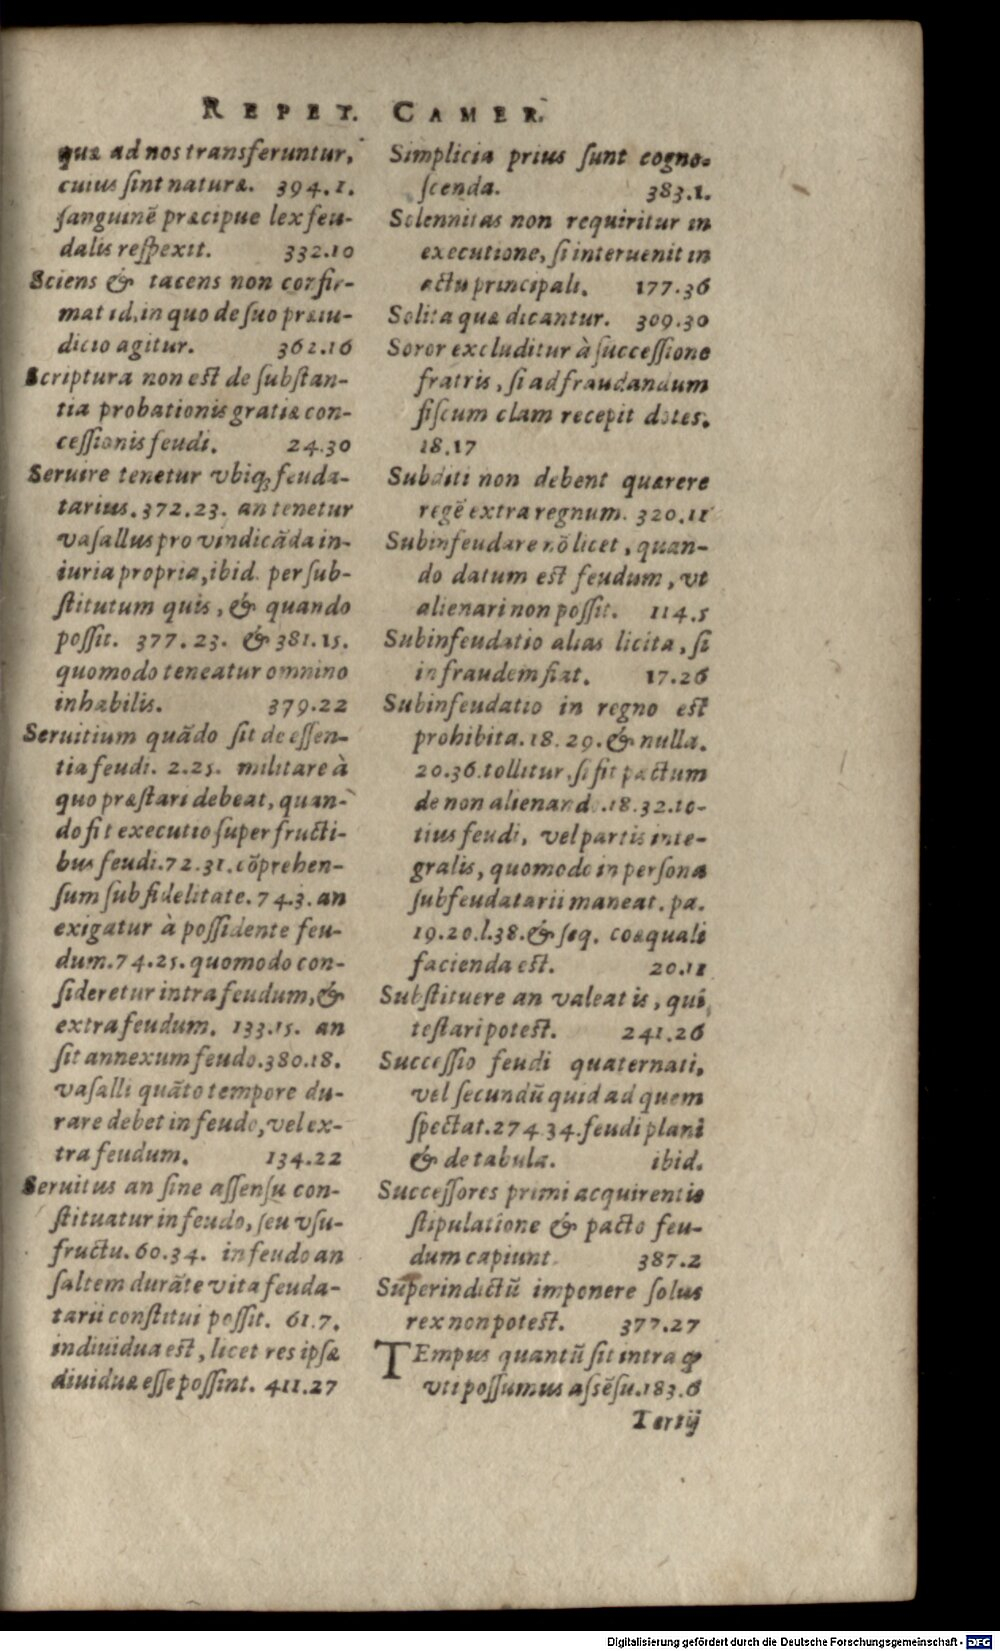 REPET. CAMER.
quæ ad nos transferuntur,
cuius ſint naturæ. 394.1.
ſanguinē præcipue lex feu-
dalis reſpexit. 332.10
Sciens & tacens non confir-
mat id, in quo de ſuo præiu-
dicio agitur. 362.16
Scriptura non est de ſubſtan-
tia probationis gratiæ con-
ceſſionis feudi. 24.30
Seruire tenetur vbiq; feuda-
tarius. 372.23. an tenetur
vaſallus pro vindicāda in-
iuria propria, ibid. per ſub-
ſtitutum quis, & quando
poſſit. 377. 23. & 381.15.
quomodo teneatur omnino
inhabilis. 379.22
Seruitium quādo ſit de eſſen-
tia feudi. 2.25. militare à
quo præſtari debeat, quan-
do fit executio ſuper fructi-
bus feudi. 72.31. cōprehen-
ſum ſub fidelitate. 74.3. an
exigatur à poſſidente feu-
dum. 74.25. quomodo con-
ſideretur intra feudum, &
extra feudum. 133.15. an
ſit annexum feudo. 380.18.
vaſalli quāto tempore du-
rare debet in feudo, vel ex-
tra feudum. 134.22
Seruitus an ſine aſſenſu con-
ſtituatur in feudo, ſeu vſu-
fructu. 60.34. in feudo an
ſaltem durāte vita feuda-
tarii conſtitui poſſit. 61.7.
indiuidua est, licet res ipſæ
diuiduæ eſſe poſſint. 411.27
Simplicia prius ſunt cogno-
ſcenda. 383.1.
Solennitas non requiritur in
executione, ſi interuenit in
actu principali. 177.36
Solita quæ dicantur. 309.30
Soror excluditur à ſucceſſione
fratris, ſi ad fraudandum
fiſcum clam recepit dotes.
18.17
Subditi non debent quærere
regē extra regnum. 320.11
Subinfeudare nō licet, quan-
do datum est feudum, vt
alienari non poſſit. 114.5
Subinfeudatio alias licita, ſi
in fraudem fiat. 17.26
Subinfeudatio in regno est
prohibita. 18. 29. & nulla.
20.36. tollitur, ſi fit pactum
de non alienando. 18.32. to-
tius feudi, vel partis inte-
gralis, quomodo in perſona
ſubfeudatarii maneat. pa.
19.20.l.38. & ſeq. coæquali
facienda est. 20.11
Subſtituere an valeat is, qui
teſtari potest. 241.26
Succeſſio feudi quaternati,
vel ſecundū quid ad quem
ſpectat. 274 34. feudi plani
& de tabula. ibid.
Succeſſores primi acquirentis
ſtipulatione & pacto feu-
dum capiunt 387.2
Superindictū imponere ſolus
rex non potest. 377.27
TEmpus quantū ſit intra ꝙ
vti poſſumus aſsēſu. 183.6
Tertij
Digitalisierung gefördert durch die Deutsche Forschungsgemeinschaft - DFG